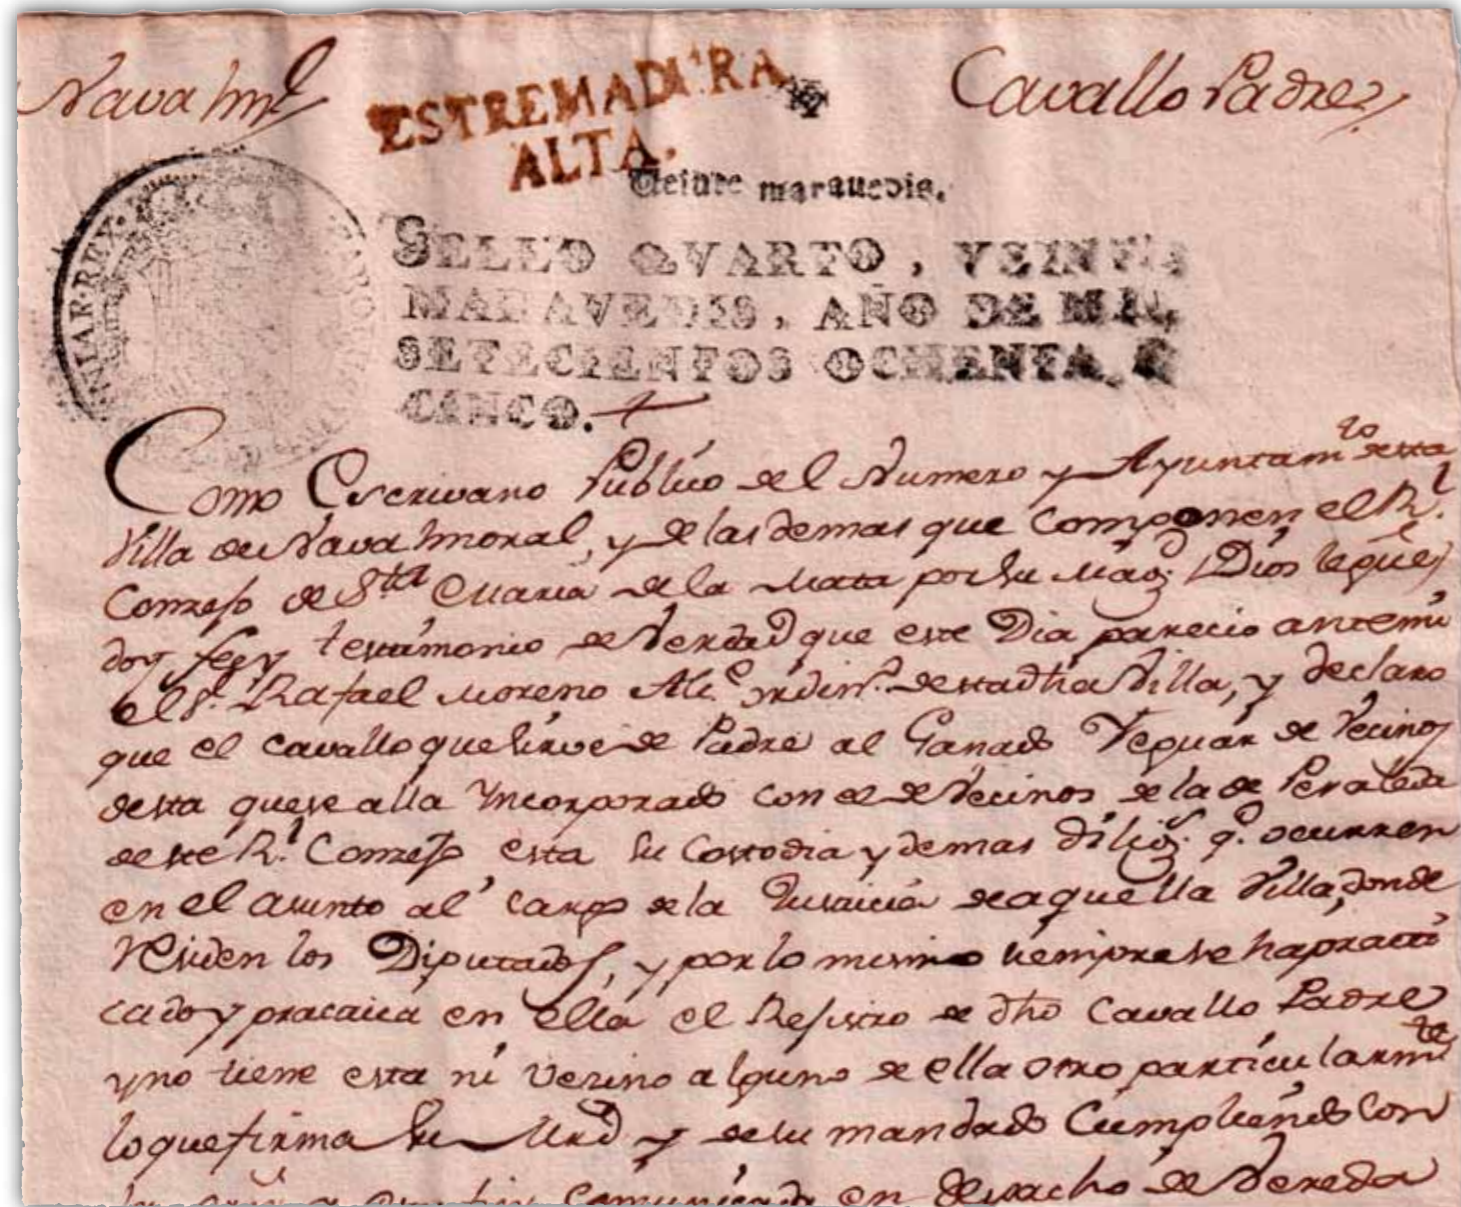 Navalml
Cavallo Padre
ESTREMADURA
ALTA.
Veinte marauedis.
SELLO QVARTO, VEINTE
MARAVEDIS, AÑO DE MIL
SETECIENTOS OCHENTA, Y
CINCO.
Como Escrivano Publico del Numero y Ayuntamto desta
Villa de Navalmoral, y de las demas que componen el Rl.
Conzejo de Sta Maria de la Mata por su Mag. (Dios le gue)
doy fee y testimonio de Verdad que este Dia parecio antemi
el Sr. Rafael Moreno Alce. ordino. desta dha Villa, y declaro
que el cavallo que sirve de Padre al Ganado Yeguar de Vecinos
desta que se alla Yncorporado con el de Vecinos de la de Peraleda
deste Rl. Conzejo esta su Custodia y demas diligs. qe. ocurren
en el asunto al cargo de la Justicia de aquella Villa, donde
residen los Diputados, y por lo mismo siempre se ha practi
cado y practica en ella el Rejistro de dho Cavallo Padre
y no tiene esta ni vezino alguno de ella otro particularmte
lo que firma su Mrd y de su mandado Cumpliendo con
comunicada en despacho de Vereda